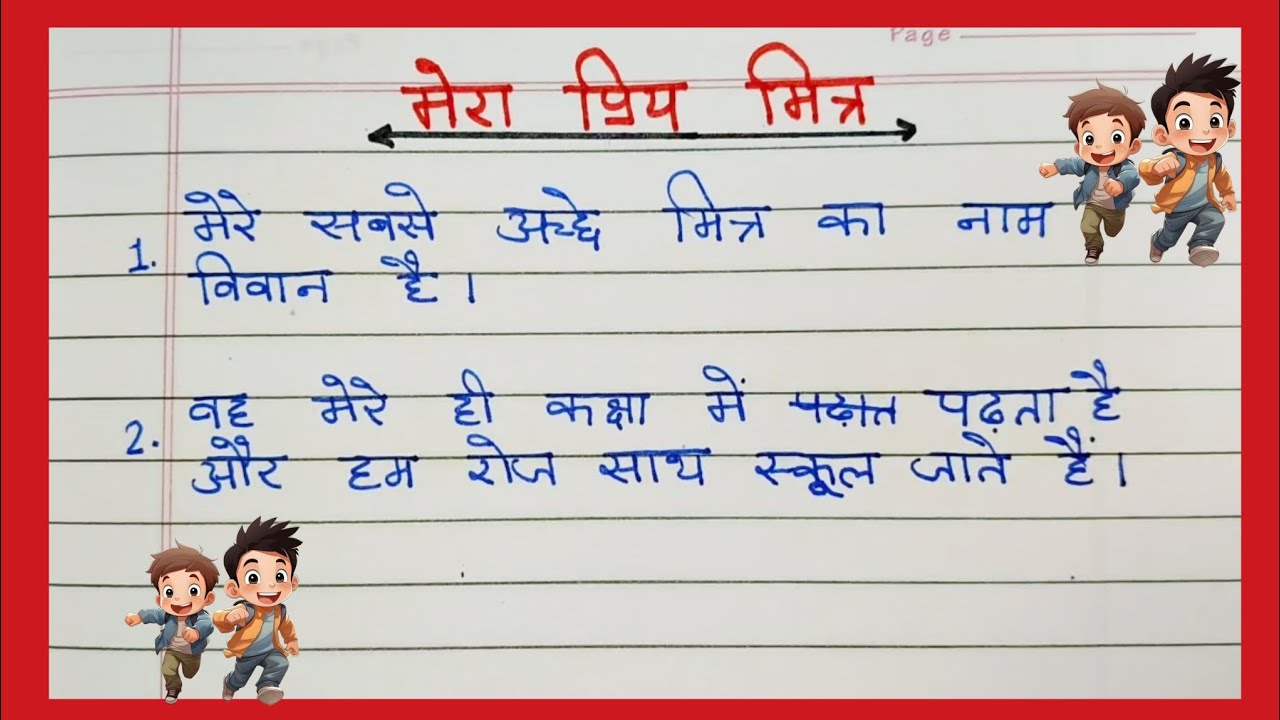 Page
मेरा प्रिय मित्र
1. मेरे सबसे अच्छे मित्र का नाम
विवान है।
2. वह मेरे ही कक्षा में पढ़ात पढ़ता है
और हम रोज साथ स्कूल जाते हैं।